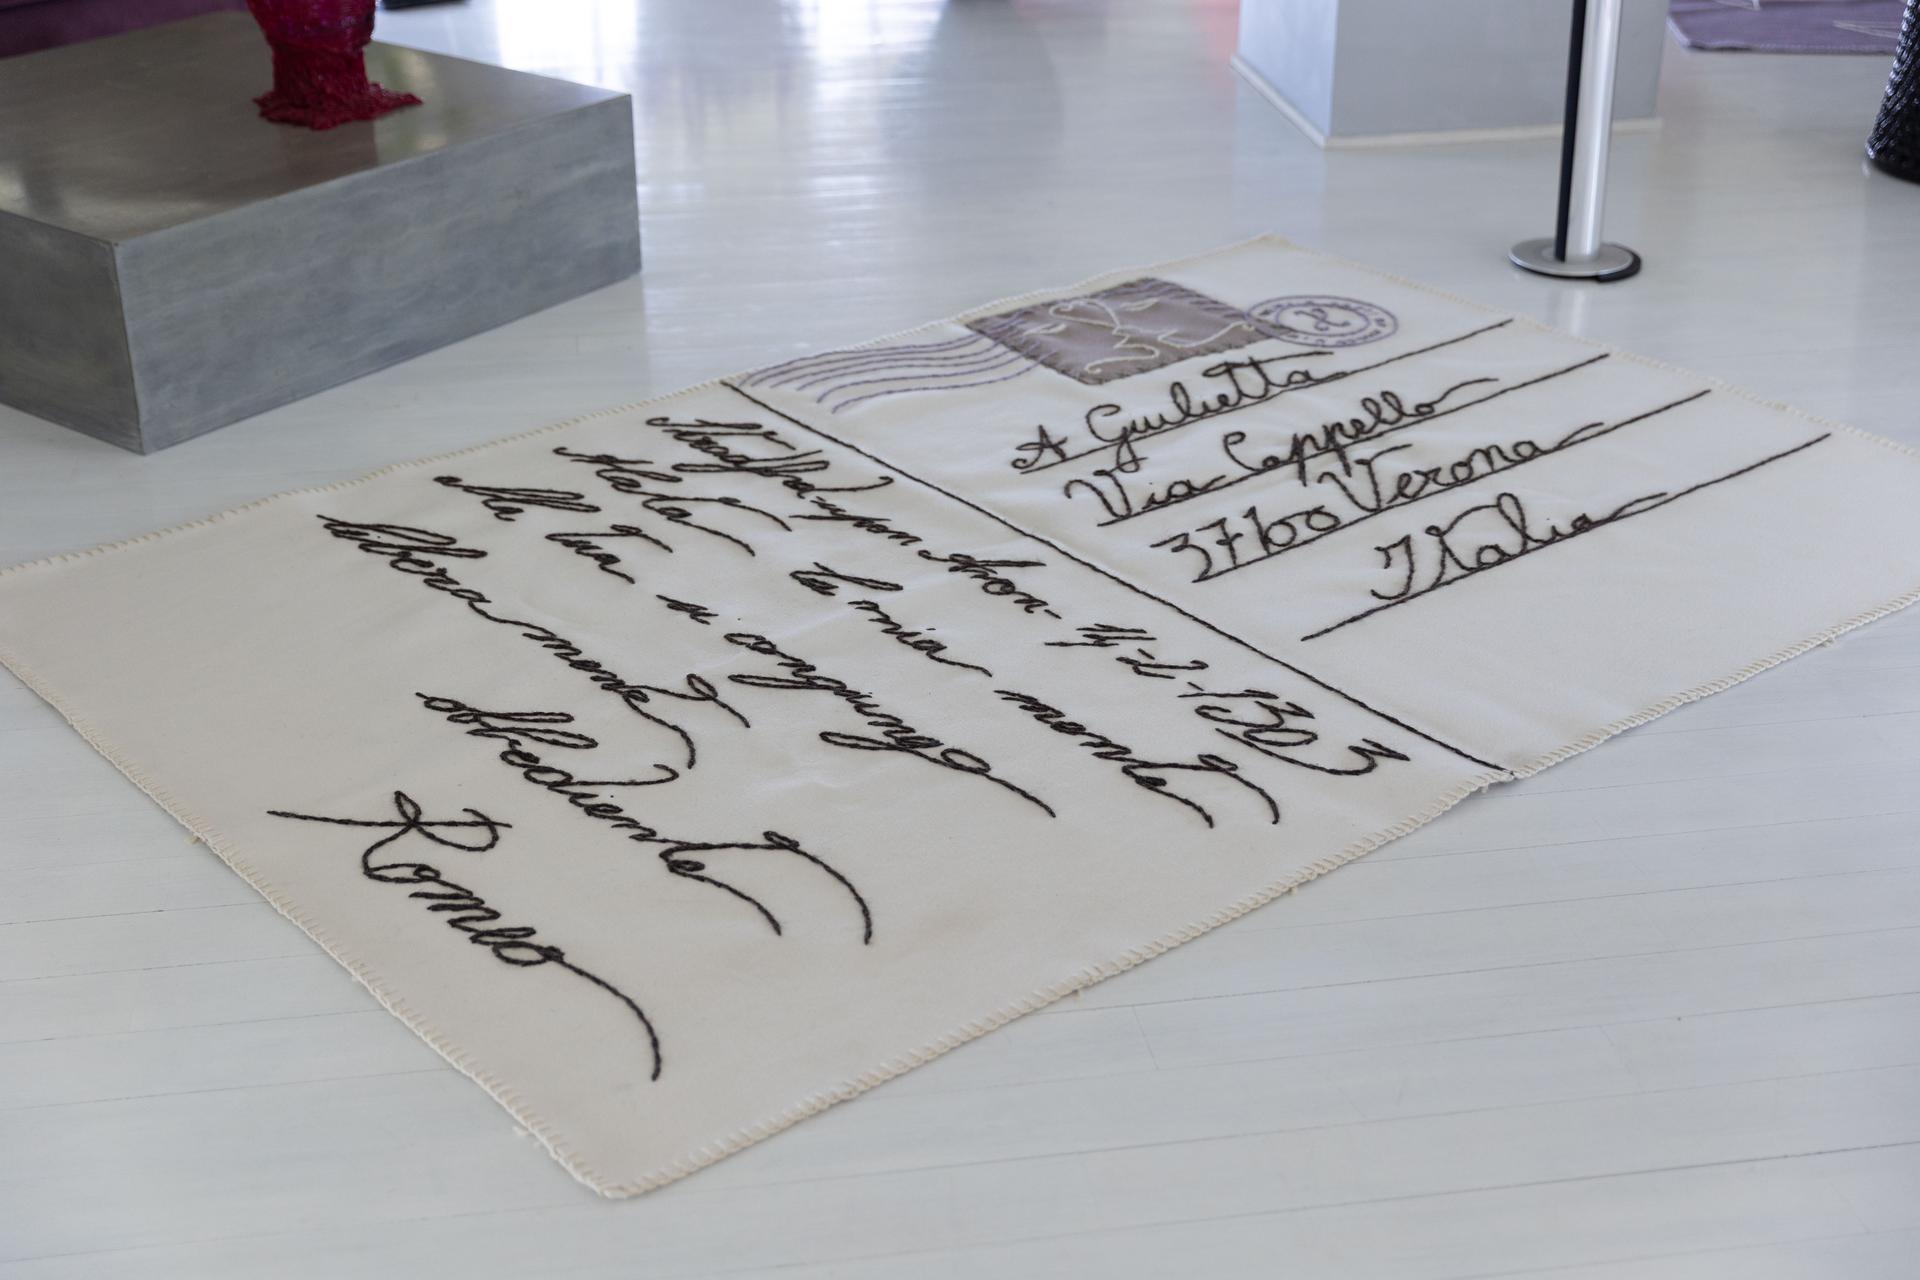 Stratford-upon Avon-
Alata la mia mente
alla tua si
libera mente
obbediente
Romeo
A Giulietta
Via Cappello
37100 Verona
Italia